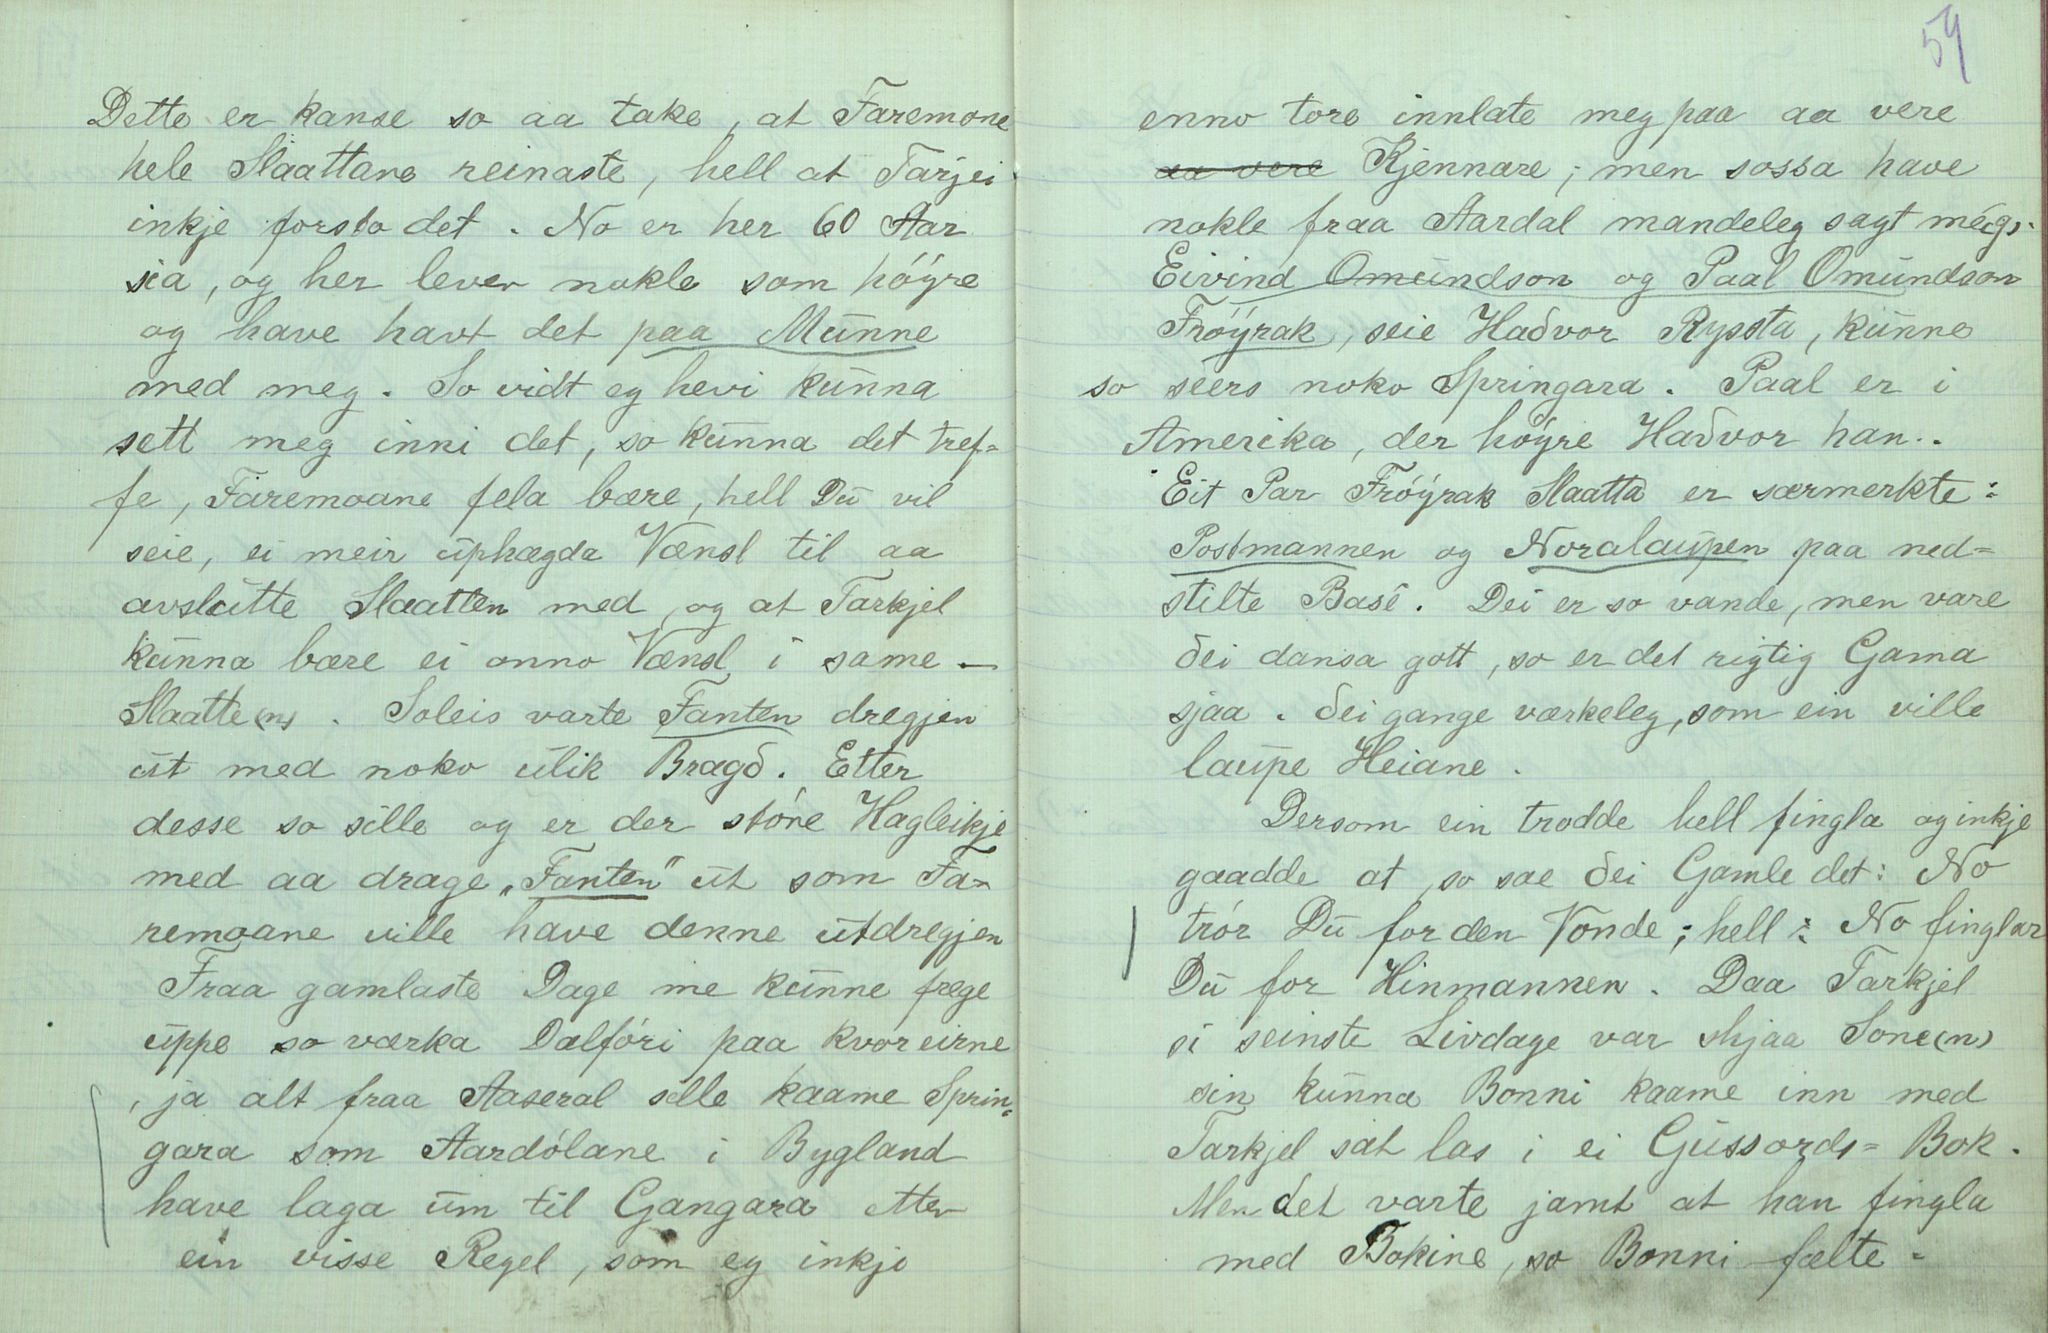 Dette er kanse so aa take, at Faremone
hele Slaattane reinaste, hell at Tarjei
inkje forsto det. No er her 60 Aar
sia, og her lever nokle som høyre
og have havt det paa Munne
med meg. So vidt eg hevi kunna
sett meg inni det, so kunna det tref=
fe, Faremoane fela bære, hell Du vil
seie, ei meir uphægda Vænsl til aa
avslutte Slaatten med, og at Tarkjel
kunna bære ei onno Vænsl i same —
Slaatte(n). Soleis varte Fanten dregjen
ut med noko ulik Bragd. Etter
desse so sille og er der stóre Hagleikje
med aa drage „Fanten" ut som Fa=
remoane ville have denne utdregjen
Fraa gamlaste Dage me kunne fræge
uppe so værka Dalfóri paa kvoreirne
, ja alt fraa Aaseral sille kaame Sprin=
gara som Aardólane i Bygland
have laga um til Gangara etter
ein visse Regel, som eg inkje
59
enno tore innlate meg paa aa vere
aa vere Kjennare; men sossa have
nokle fraa Aardal mandeleg sagt me(g).
Eivind Omundson og Paal Omundson
Frøyrak, seie Haðvor Ryssta, kunne
so seers noko Springara. Paal er i
Amerika, der høyre Haðvor han.
Eit Par Frøyrak Slaatta er særmerkte:
Postmannen og Noralaupen paa ned=
stilte Basé. Dei er so vande, men vare
ðei dansa gott, so er det rigtig Gama
sjaa. ðei gange værkeleg, som ein ville
laupe Heiane.
Dersom ein trodde hell fingla og inkje
gaadde at, so sae ðei Gamle det: No
trór Du for den Vonde; hell: No finglar
Du for Hinmannen. Daa Tarkjel
si seinste Livdage var skjaa Sone(n)
sin kunna Bonni kaame inn med
Tarkjel sat las i ei Gussords= Bok.
Men ðet varte jamt at han fingla
med Bokine, so Bonni fælte =